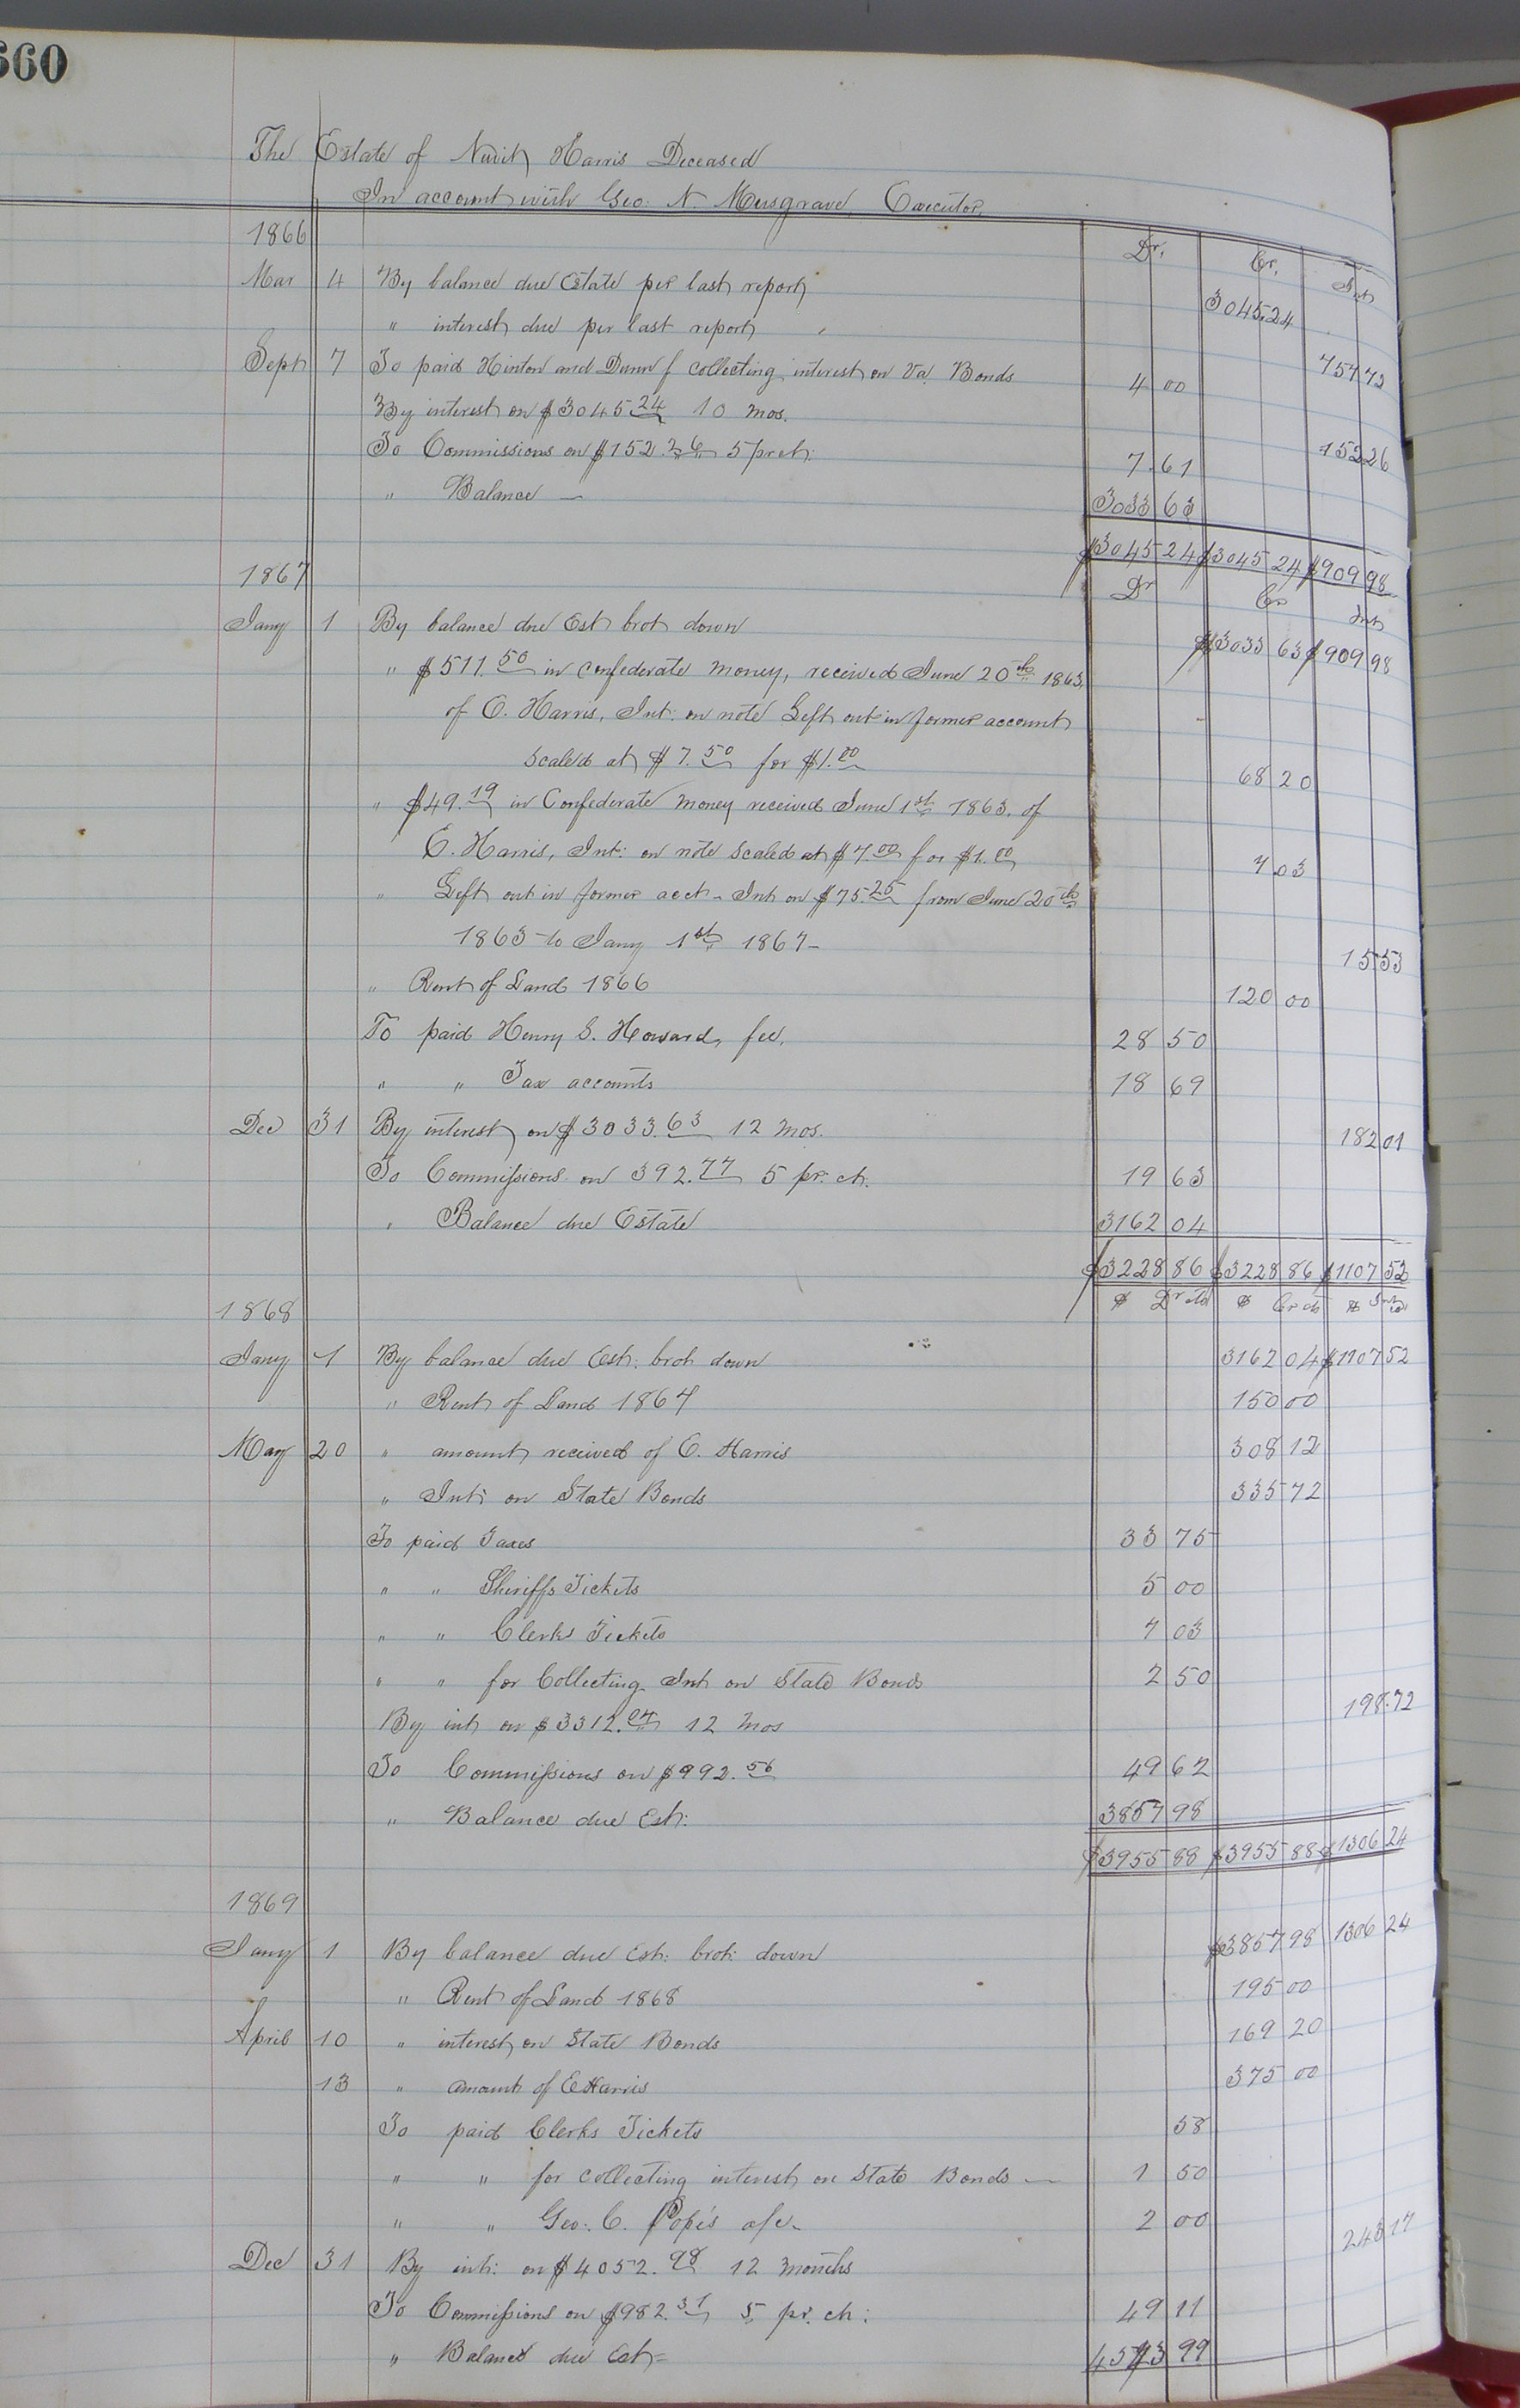 660
The Estate of Newit Harris Deceased
In account with Geo. N. Musgrave, Executor,
1866 Dr. Cr. Int
Mar 4 By balance due Estate per last report 3045.24
" interest due per last report 757 72
Sept 7 To paid Hinton and Dunn f collecting interest on Va. Bonds 4 00
By interest on $3045 24 10 mos. 152 26
To Commissions on $152.26 5 pr ct: 7.61
" Balance — 3033 63
$3045 24 $3045 24 $909 98
1867 Dr Cr Int
Jany 1 By balance due Est brot down $3033 63 $909 98
" $511.50 in Confederate money, received June 20th 1863,
of E. Harris, Int: on note Left out in former account
scaled at $7.50 for $1.00 68 20
" $49.19 in Confederate money received June 1st 1863. of
E. Harris, Int: on note scaled at $7.00 for $1.00 7 03
" Left out in former acct - Int on $75.25 from June 20th
1863 to Jany 1st 1867- 15 53
" Rent of Land 1866 120 00
To paid Henry S. Howard, fee, 28 50
" " Tax accounts 18 69
Dec 31 By interest on $3033.63 12 mos. 182 01
To Commissions on 392.77 5 pr. ct. 19 63
" Balance due Estate 3162 04
$3228 86 $3228 86 $1107 52
1868 $ Dr cts $ Cr cts $ Int cts
Jany 1 By balance due Est: brot down 3162 04 $1107 52
" Rent of Land 1867 150 00
May 20 " amount received of E. Harris 308 12
" Int: on State Bonds 335 72
To paid Taxes 33 75
" " Sheriffs Tickets 5 00
" " Clerks Tickets 7 03
" " for Collecting Int on State Bonds 2 50
By int on $3312.04 12 mos 198.72
To Commissions on $992.56 49 62
" Balance due Est: 3857 98
$3955 88 $3955 88 $1306 24
1869
Jany 1 By balance due Est: brot: down $3857 98 1306 24
" Rent of Land 1868 195 00
April 10 " interest on State Bonds 169 20
13 " amount of E Harris 375 00
To paid Clerks Tickets 58
" " for collecting interest on State Bonds — 1 50
" " Geo: C. Pope's a/c. 2 00
Dec 31 By int: on $4052.98 12 months 243 17
To Commissions on $982.37 5 pr. ct: 49 11
" Balance due Est= 4543 99